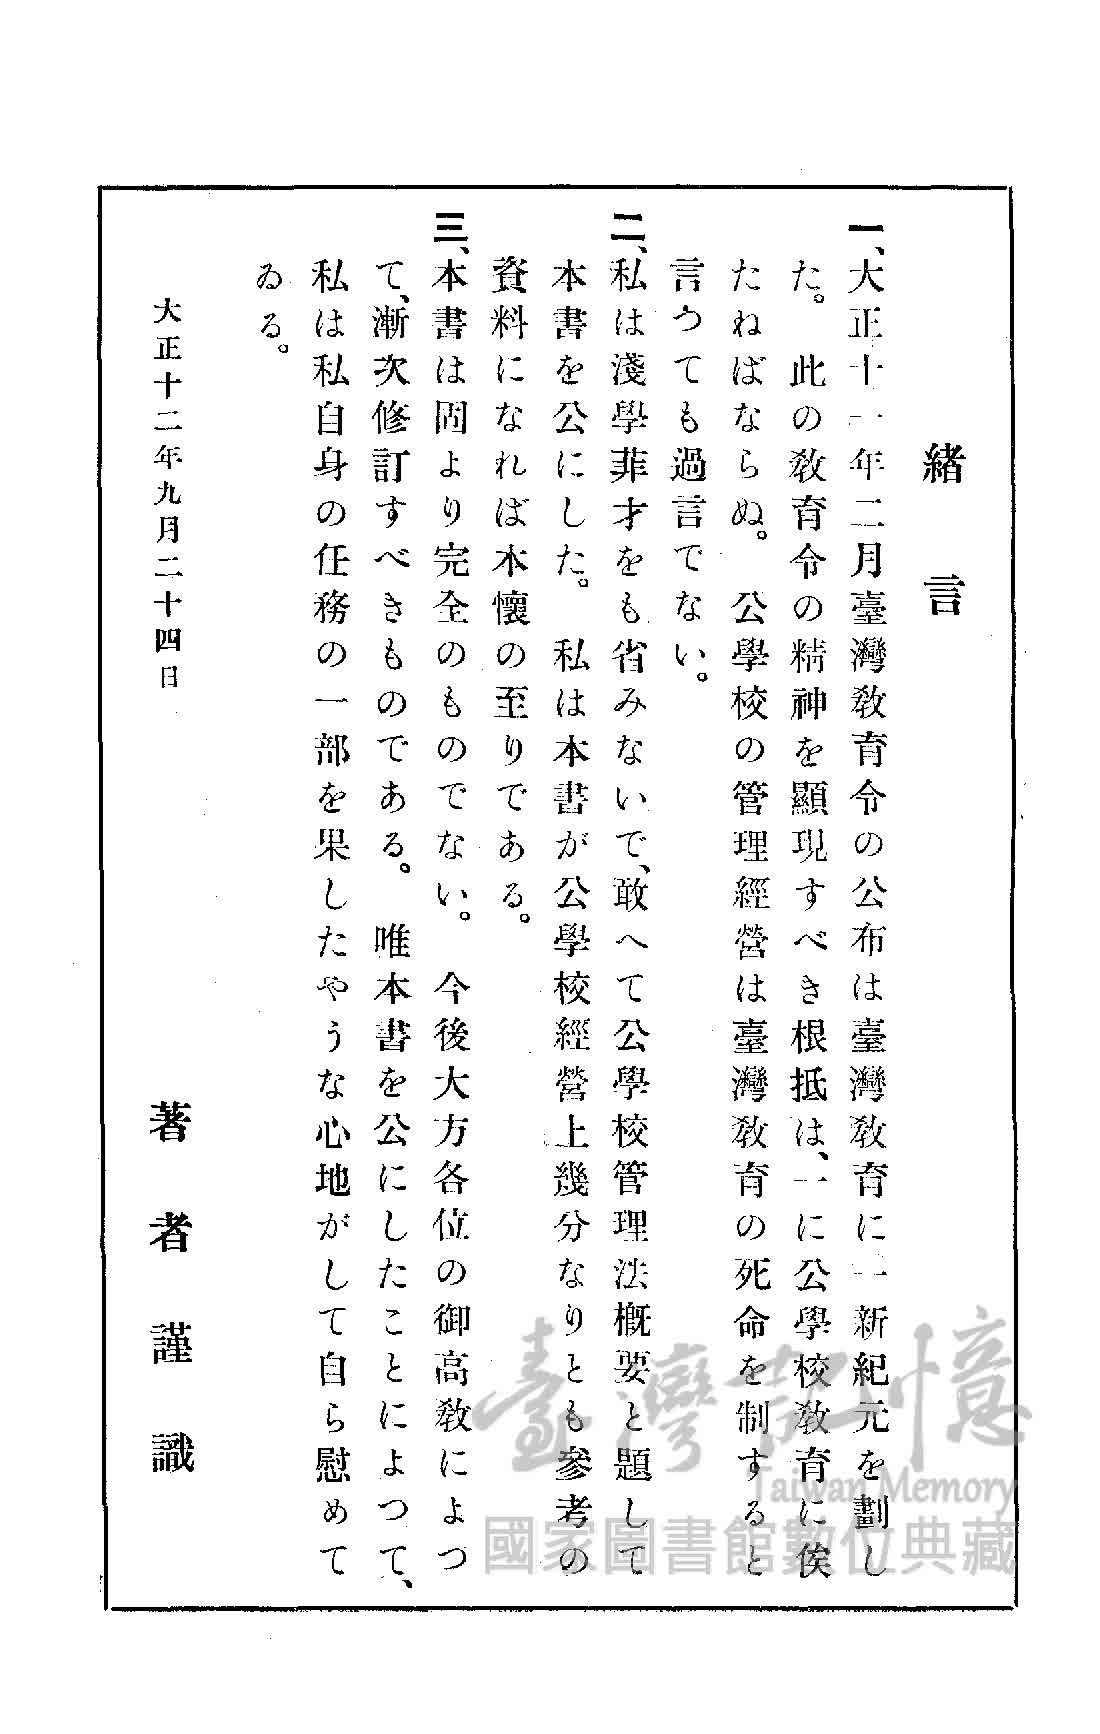 緒言
一、大正十一年二月臺灣敎育令の公布は臺灣敎育に一新紀元を劃し
た。此の敎育令の精神を顯現すべき根抵は、一に公學校敎育に俟
たねばならぬ。公學校の管理經營は臺灣敎育の死命を制すると
言つても過言でない。
二、私は淺學菲才をも省みないで、敢へて公學校管理法概要と題して
本書を公にした。私は本書が公學校經營上幾分なりとも參考の
資料になれば本懷の至りである。
三、本書は固より完全のものでない。今後大方各位の御高敎によつ
て、漸次修訂すべきものである。唯本書を公にしたことによつて、
私は私自身の任務の一部を果したやうな心地がして自ら慰めて
ゐる。
大正十二年九月二十四日
著者謹識
臺灣記憶
Taiwan Memory
國家圖書館數位典藏